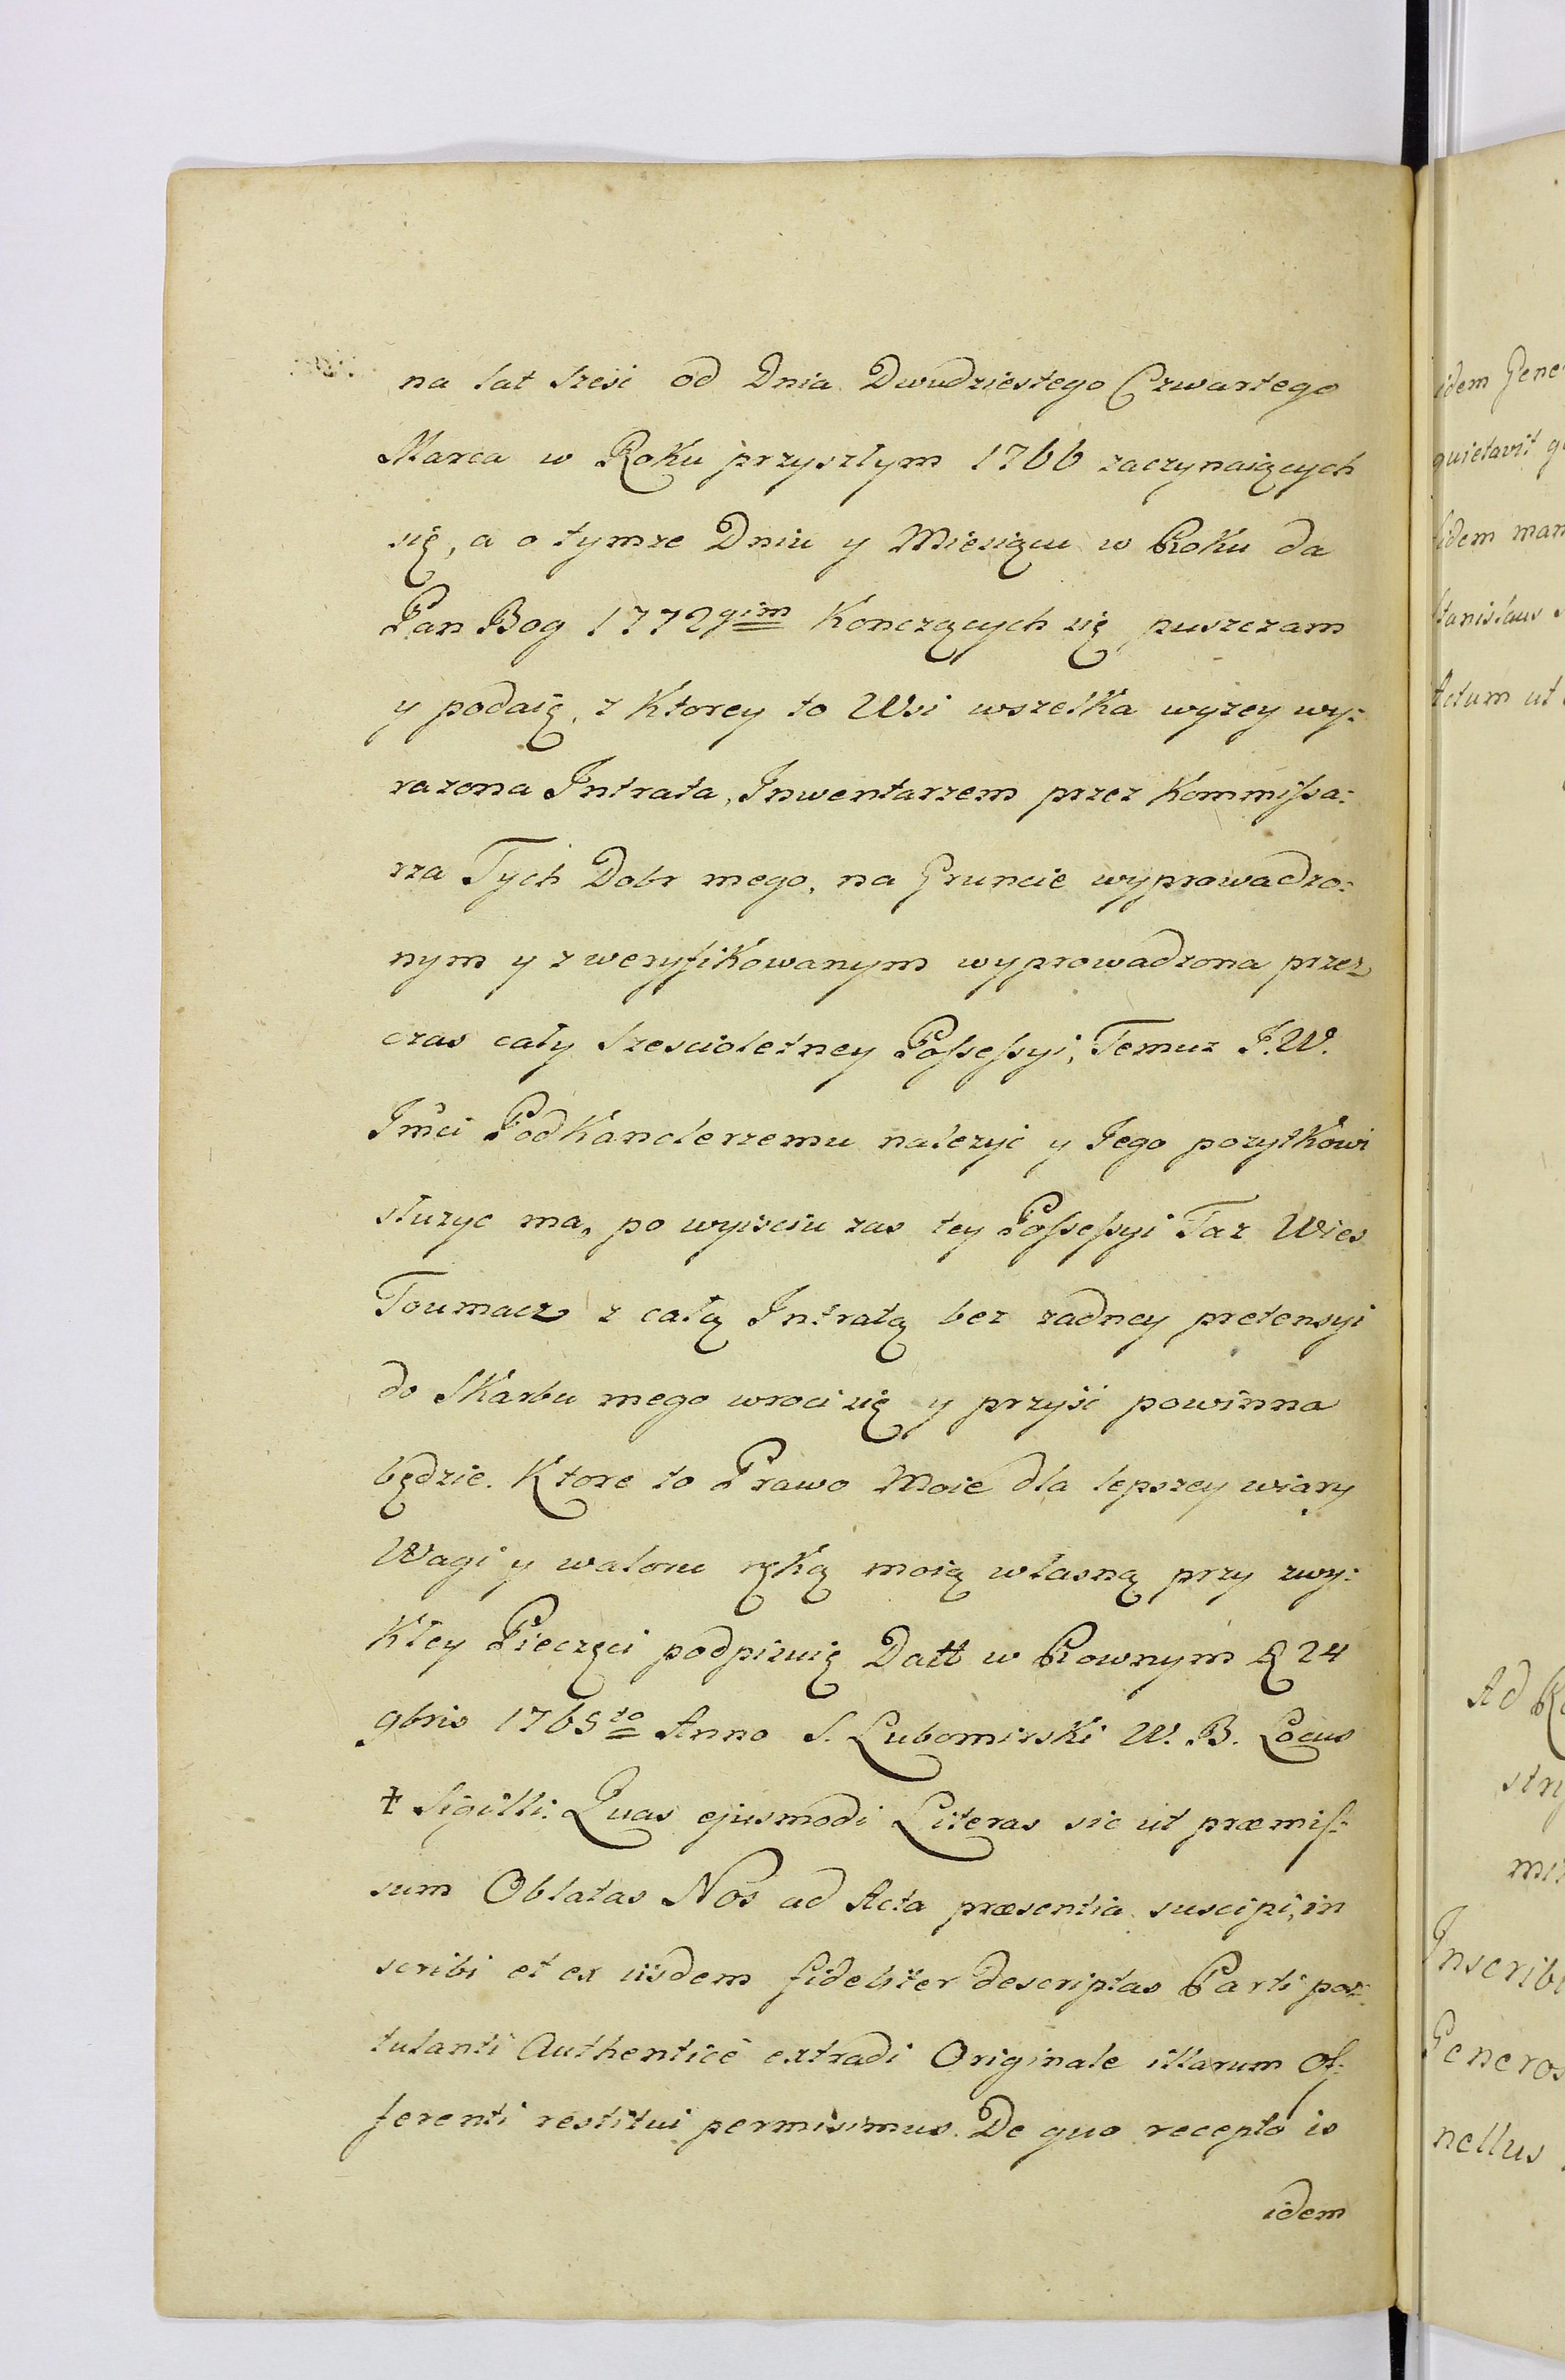 na lat sześć od Dnia Dwudziestego Czwartego
Marca w Roku przyszłym 1766 zaczynaiących
się, a o tymze Dniu y Miesiącu w Roku da
Pan Bog 1772gim Konczących się puszczam
y podaię, z Ktorey to Wsi wszelka wyzey wy:
razona Intrata, Inwentarzem przez Kommissa:
rza Tych Dobr mego, na Gruncie wyprowadzo:
nym y zweryfikowanym wyprowadzona przez
czas cały szescioletney Possessyi, Temuz J.W.
Jmci PodKanclerzemu nalezyć y Jego pozytkowi
służyc ma, po wyisciu zas tey Possessyi Taz Wies
Toumacz z całą Intratą bez zadney pretensyi
do Skarbu mego wroci się y przyść powinna
będzie. Ktore to Prawo Moie dla lepszey wiary
Wagi y waloru ręką moią własną przy zwy:
Kley Pieczęci podpisuię Datt w Rownym D 24
9bris 1765to Anno S. Lubomirski W. B. Locus
‡ Sigilli. Quas ejusmodi Literas sic ut præmis:
sum Oblatas Nos ad Acta præsentia suscipi, in
scribi et ex iisdem fideliter descriptas Parti pos:
tulanti Authenticè extradi Originale illarum Of:
ferenti restitui permisimus. De quo recepto is
idem
idem Gene
quietavit
fidem man
Stanislaus
Actum ut
Ad
stry
Inscribi
Generos
nellus